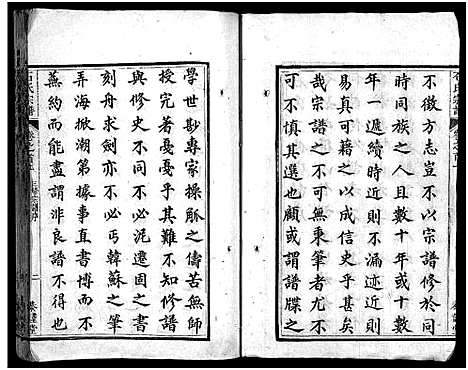 不徵方志豈不以宗譜修於同
時同族之人且數十或十數
年一遞續時近斯人近近則
易真可以成信史乎甚矣
哉宗譜之不可無秉筆者尤不
可不慎其選也顧或謂譜牒之
學世尠專家操觚之儔苦無師
授完著憂憂乎其難不知修譜
與修史不同不必泥遷固之書
刻舟求劍亦不必丐韓蘇之筆
弄海掀潮第據事直書博而不
蕪約而能盡謂非良譜不得也
石氏宗譜
二